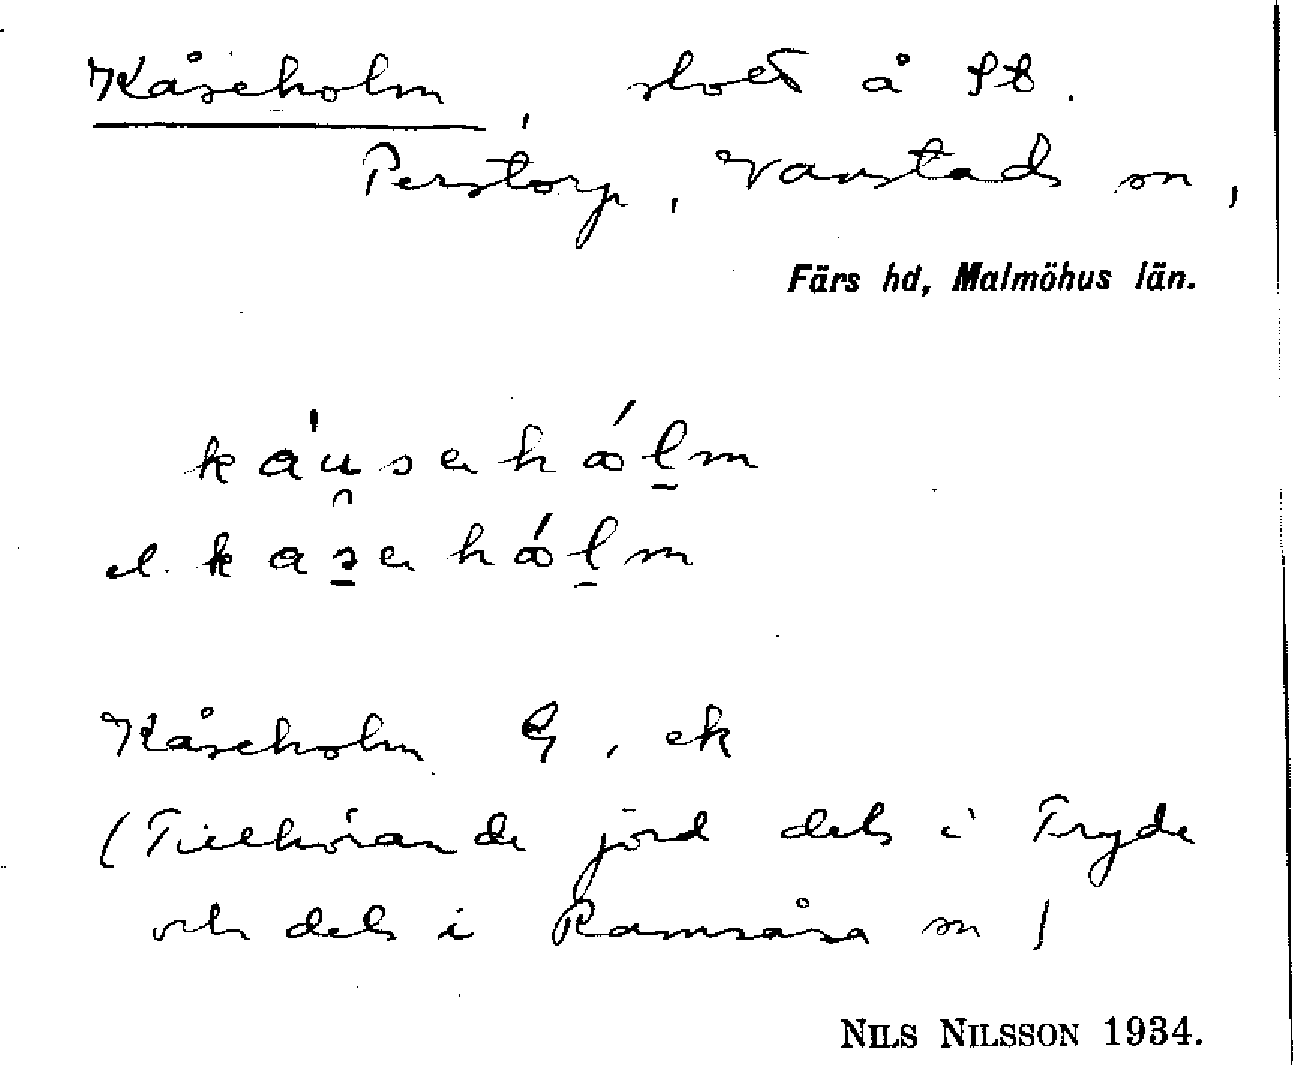 Kåseholm, slott å St.
Perstorp, Vanstads sn,
Färs hd, Malmöhus län.
ká'u̯sahǻl̠m
el. kas̠ahǻl̠m
Kåseholm G, ek
(Tillhörande jord dels i Tryde
och dels i Ramsåsa sn)
NILS NILSSON 1934.